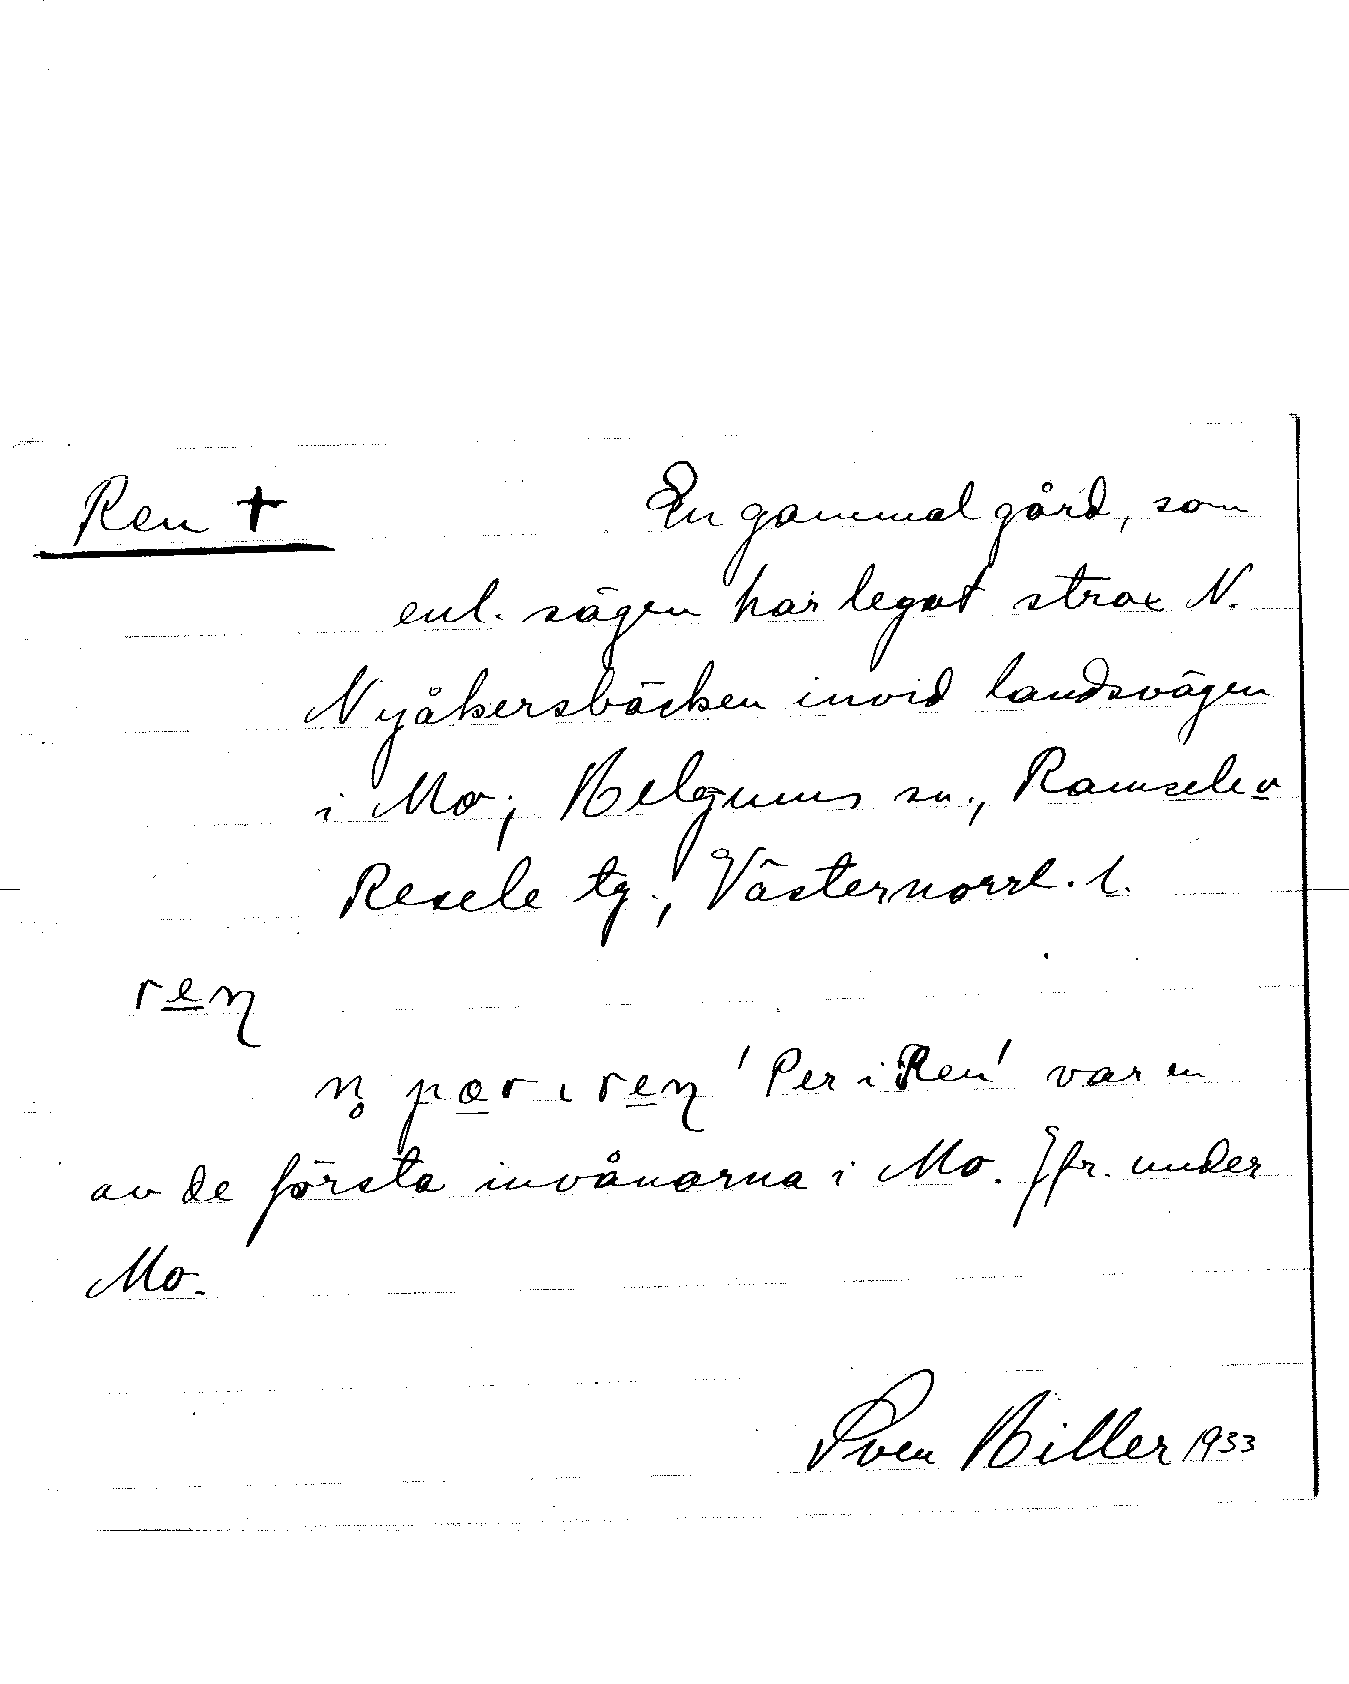 Ren + En gammal gård, som
enl. sägen har legat strax N.
Nyåkersbäcken invid landsvägen
i Mo, Helgums sn., Ramsele o
Resele tg., Västernorrl. l.
ren
n̥ pær ı ren 'Per i Ren' var en
av de första invånarna i Mo. Jfr. under
Mo.
Sven Hiller 1933